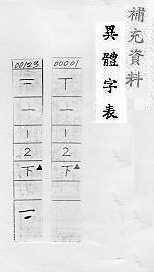 補充資料
異體字表
00001
丅
一
1
2
下▲
00123
二
一
1
2
下▲